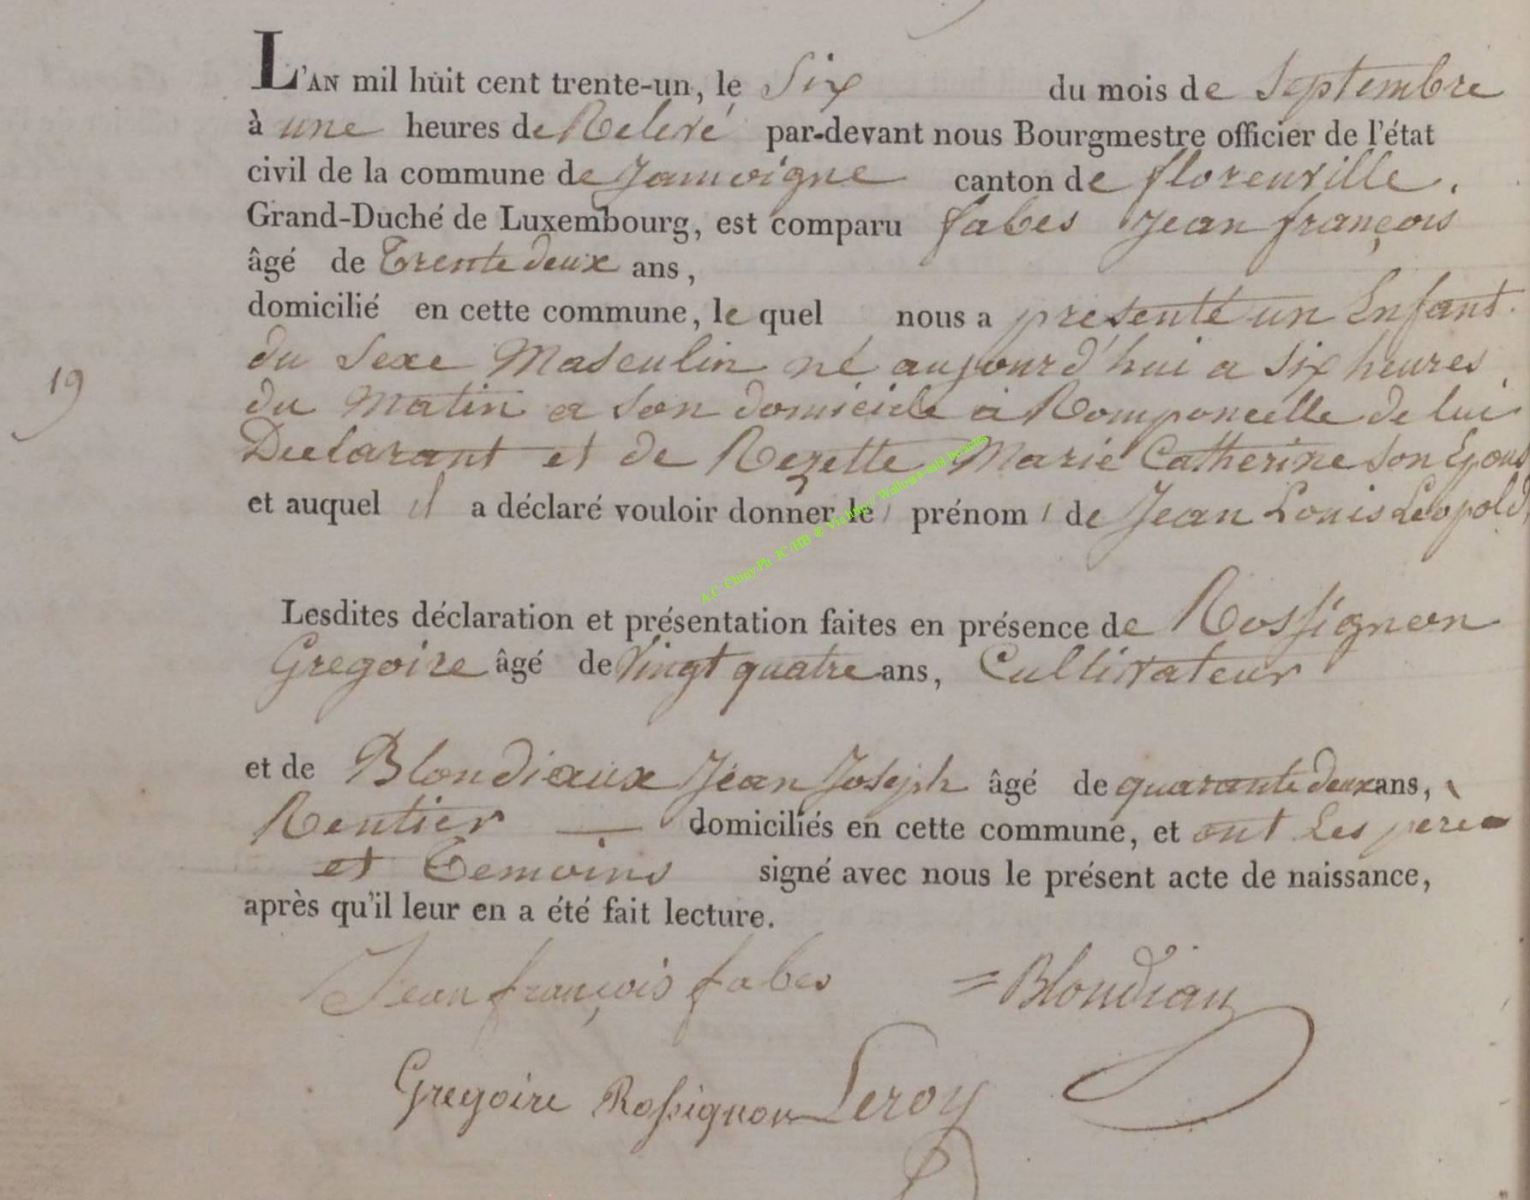 L'AN mil huit cent trente-un, le Six du mois de Septembre
à une heures de Relevé par-devant nous Bourgmestre officier de l'état
civil de la commune de Jamoigne canton de florenville,
Grand-Duché de Luxembourg, est comparu fabes Jean françois
âgé de Trente deux ans,
domicilié en cette commune, le quel nous a presenté un Enfant
du Sexe Masculin né aujourd'hui a six heures
19
du Matin a son domicile a Romponcelle de lui
Declarant et de Rezette Marie Catherine son Epouse
et auquel il a déclaré vouloir donner le prénom de Jean Louis Léopold,
Lesdites déclaration et présentation faites en présence de Rossignon
Gregoire âgé de Vingt quatre ans, Cultivateur
et de Blondiaux Jean Joseph âgé de quarante deux ans,
Rentier — domiciliés en cette commune, et ont Les pere
et Temoins signé avec nous le présent acte de naissance,
après qu'il leur en a été fait lecture.
Jean françois fabes = Blondiau
Gregoire Rossignon Leroy